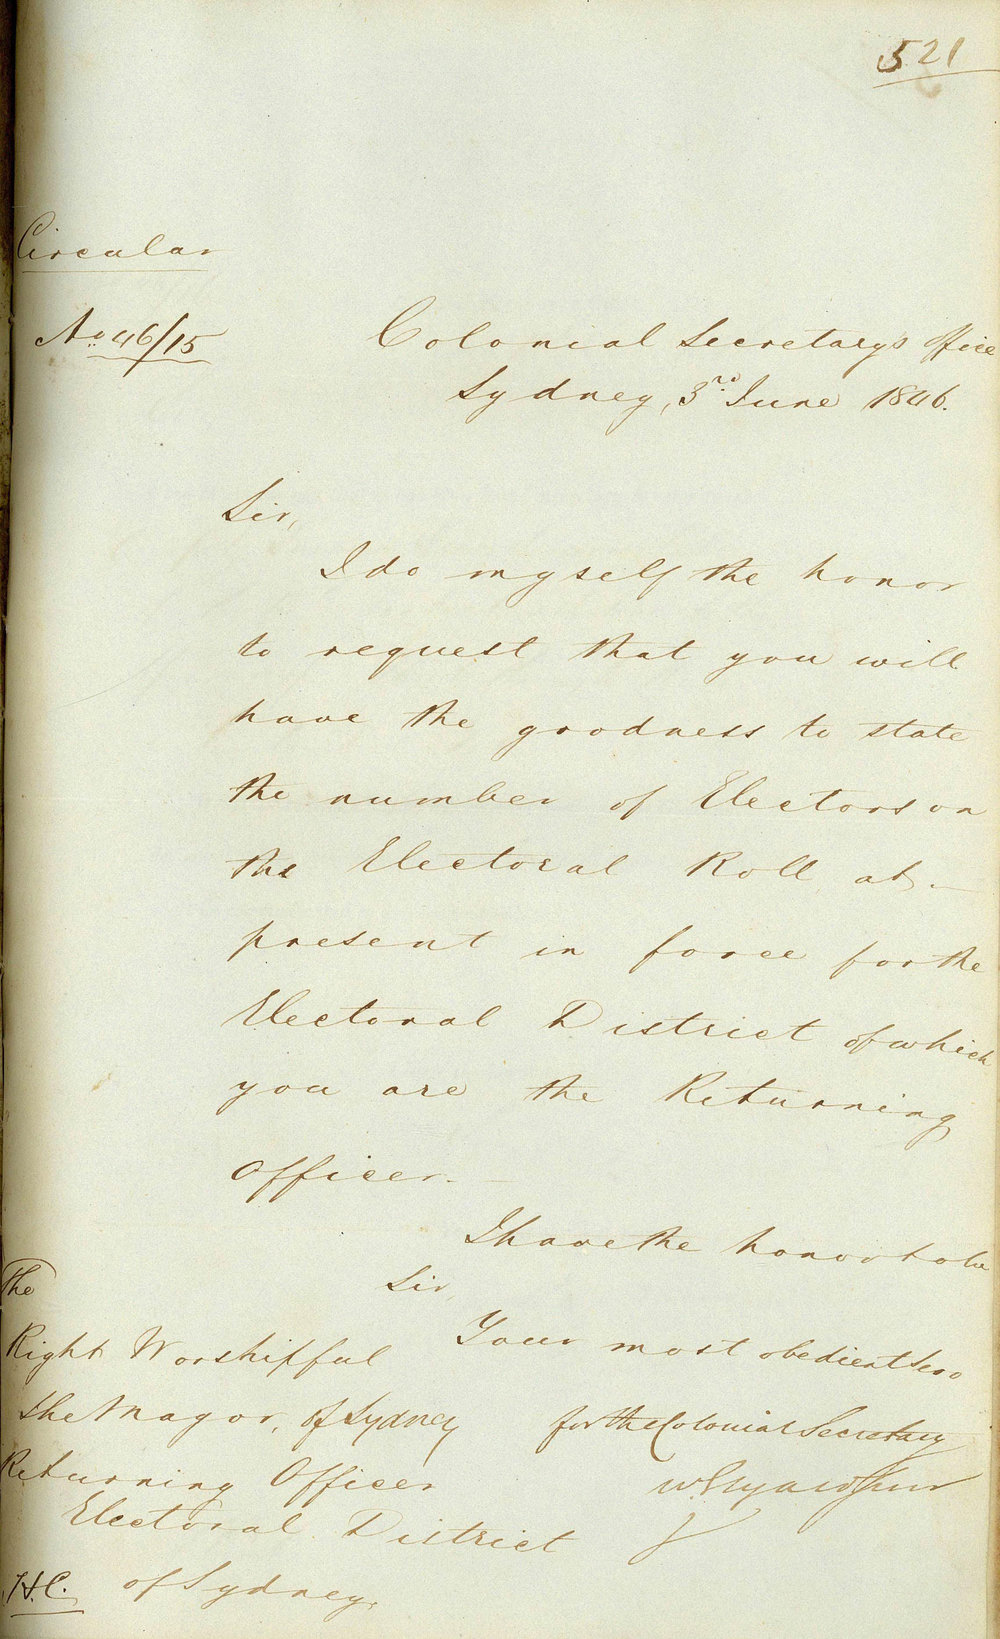 521
Circular
No 46/15
Colonial Secretarys Office
Sydney, 3rd June 1846.
Sir,
I do myself the honor
to request that you will
have the goodness to state
the number of Electors on
the Electoral Roll at
present in force for the
Electoral District of which
you are the Returning
Officer.
I have the honor to be
Sir,
Your most obedient Serv
for the Colonial Secretary
The
Right Worshipful
the Mayor, of Sydney
Returning Officer
Electoral District
of Sydney.
H.C.